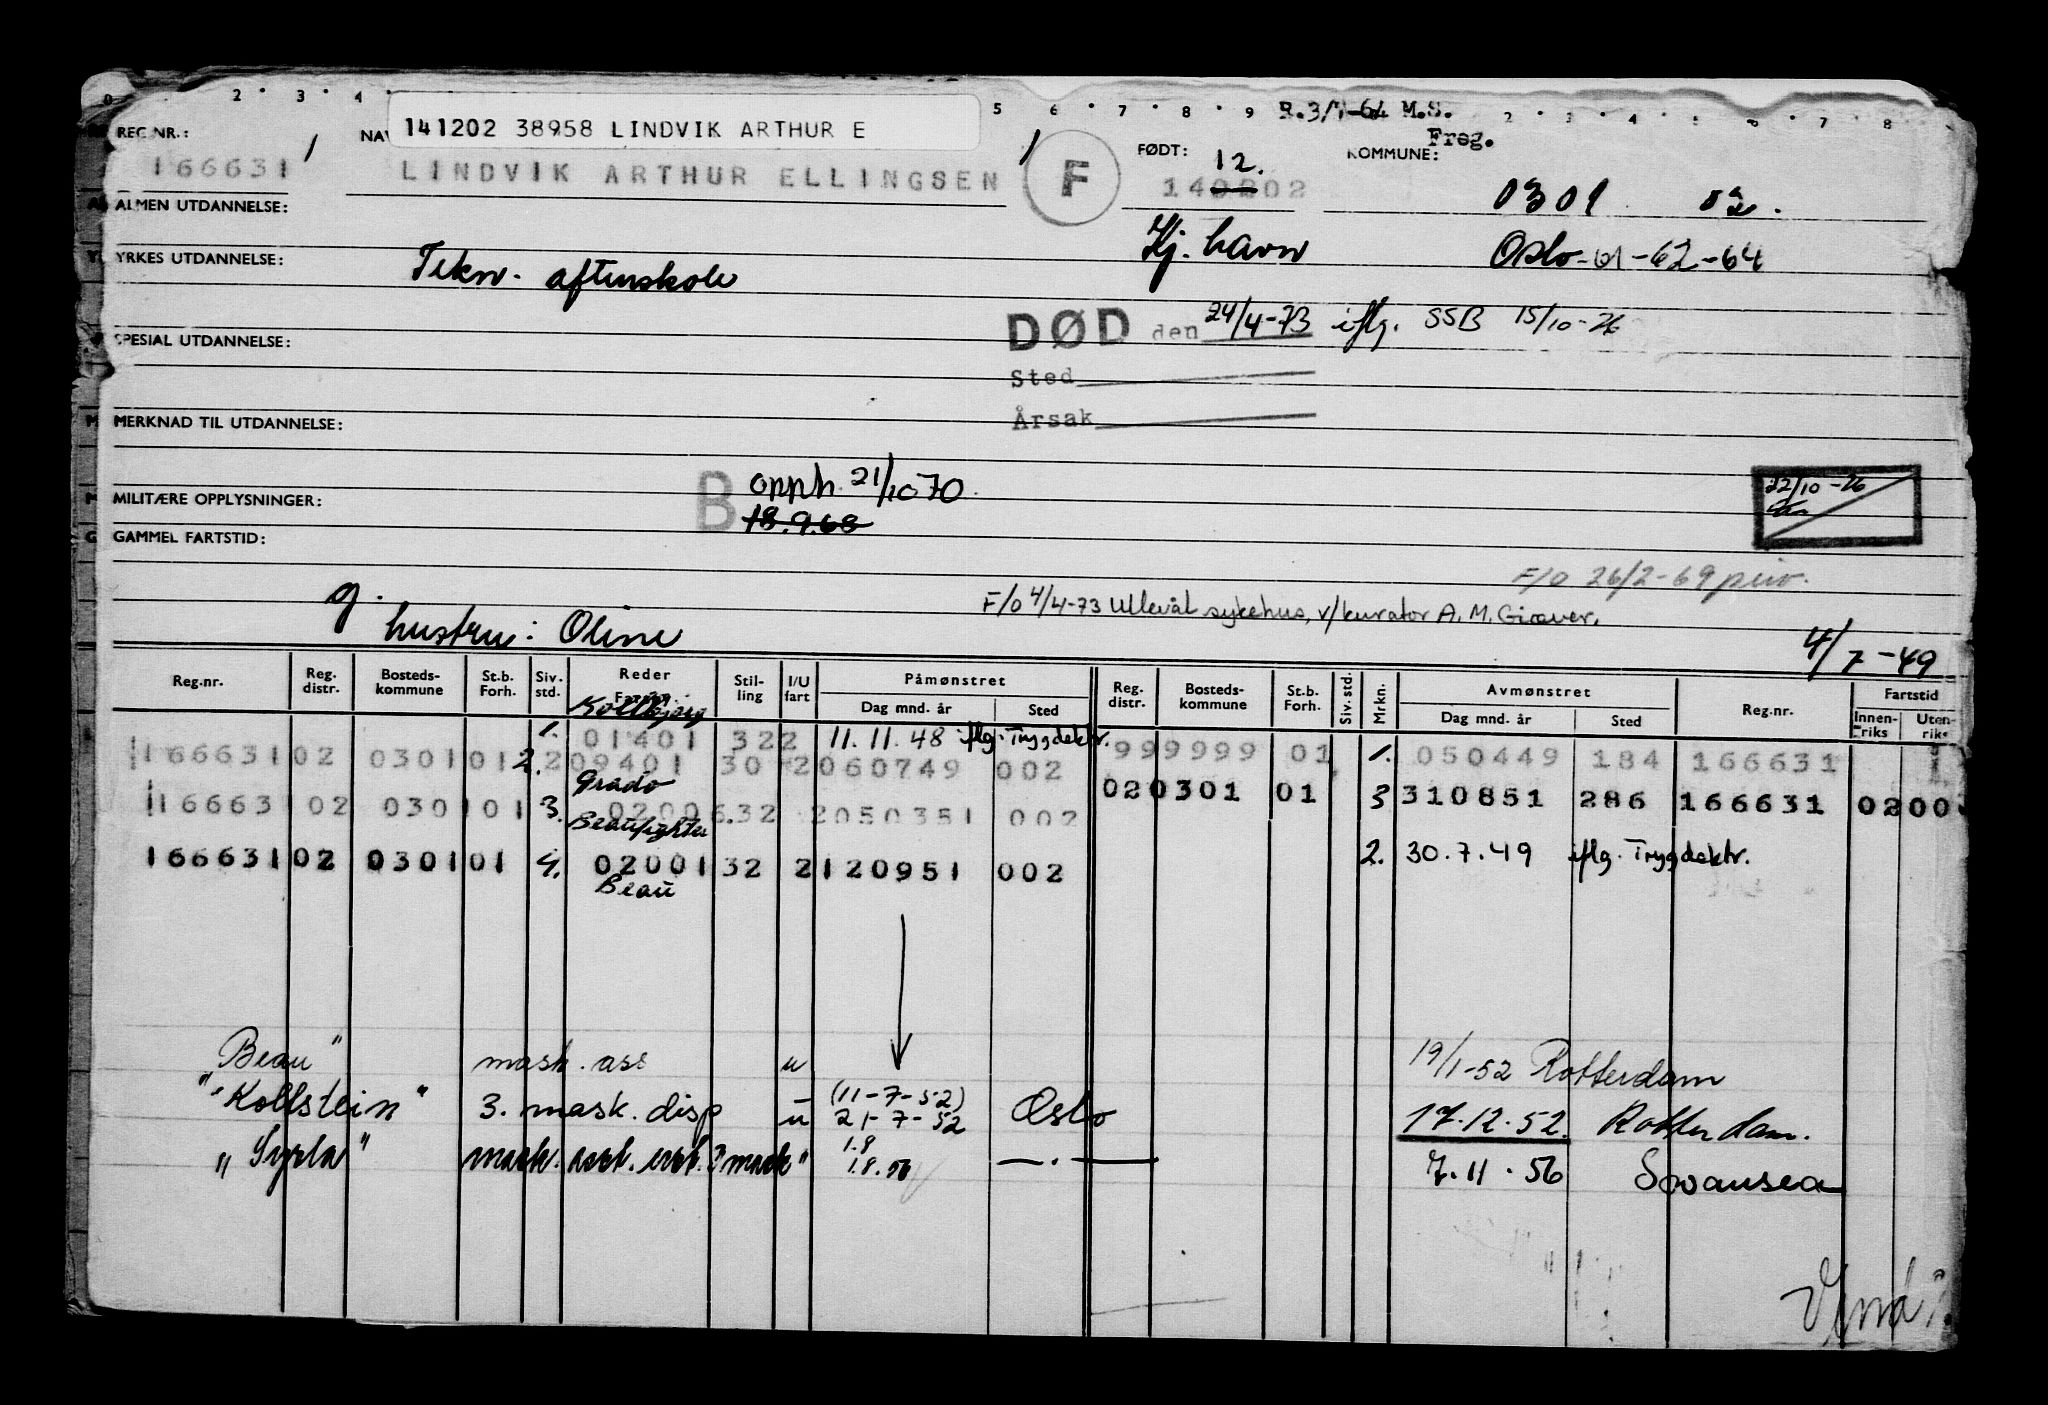 0 2 3 4 5 6 7 8 9 R.3/7-64 M.S. 2 3 4 5 6 7 8
Freg.
REG.NR.: 166631 /
NAV
141202 38958 LINDVIK ARTHUR E
LINDVIK ARTHUR ELLINGSEN / F
FØDT: 12.
140202
KOMMUNE: 0301 02.
ALMEN UTDANNELSE:
Kj. havn Oslo-61-62-64
YRKES UTDANNELSE: Tekn. aftenskole
DØD den 24/4-73 iflg. SSB 15/10-76
SPESIAL UTDANNELSE:
Sted
Årsak
MERKNAD TIL UTDANNELSE:
B opph. 21/10 70.
18.9.68
22/10-76
MILITÆRE OPPLYSNINGER:
GAMMEL FARTSTID:
F/O 26/2-69 priv.
g. F/O 4/4-73 Ullevål sykehus, v/kurator A. M. Giæver.
hustru: Oline
4/7-49
Reg.nr. Reg. distr. Bosteds-kommune St.b. Forh. Siv. std. Reder Stil-ling I/U fart Påmønstret Dag mnd. år Sted Reg. distr. Bosteds-kommune St.b. Forh. Siv. std. Mrkn. Avmønstret Dag mnd. år Sted Reg.nr. Fartstid Innen-riks Uten-riks
Kollbjørg
1. 01401 322 11.11.48 iflg. Trygdektr. 999999 01 1. 050449 184 166631
166631 02 0301 01 2. 2 09401 30 2 060749 002
Grado
020301 01 3 310851 286 166631 02 00
166631 02 0301 01 3. 02006 32 2 050351 002
Beaufighter
2. 30.7.49 iflg. Trygdektr.
166631 02 0301 01 4. 02001 32 2 120951 002
Beau
Beau" mask. ass u 19/1-52 Rotterdam
"Kollstein" 3. mask. disp u (11-7-52) 21-7-52 Oslo 17.12.52. Rotterdam.
"Syrla" mask. asst. 1.8 1.8.56 —.— 7.11.56 Swansea
Vend!